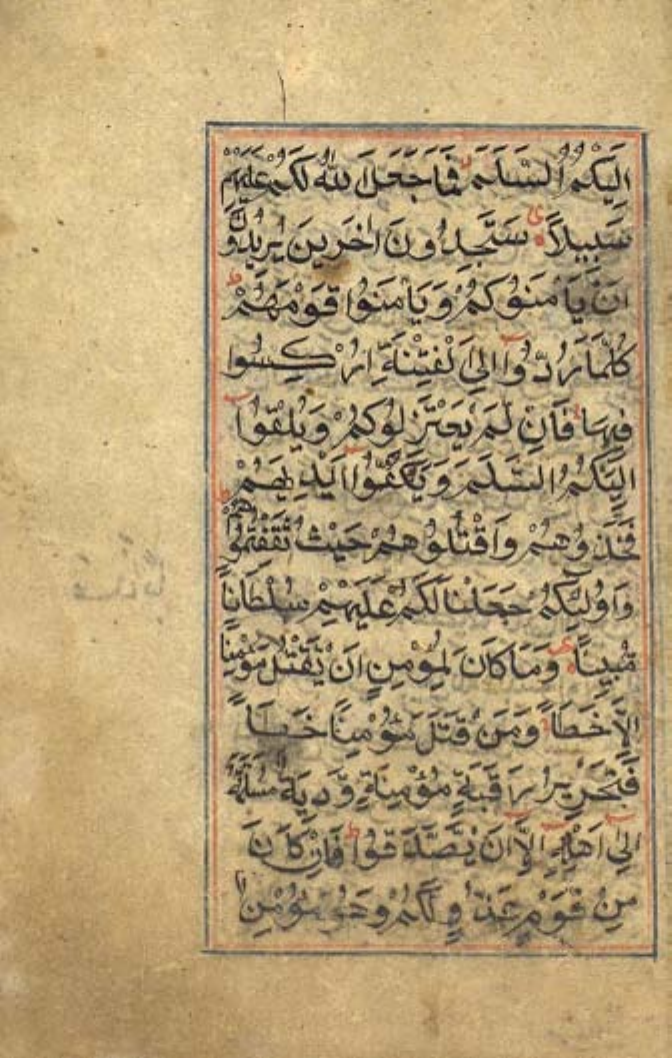 اِلَيْكُمُ السَّلَمَ فَمَا جَعَلَ اللّٰهُ لَكُمْ عَلَيْهِمْ
سَبِيلًا سَتَجِدُونَ اٰخَرِينَ يُرِيدُونَ
اَنْ يَاْمَنُوكُمْ وَيَاْمَنُوا قَوْمَهُمْ
كُلَّمَا رُدُّوا اِلَى الْفِتْنَةِ اُرْكِسُوا
فِيهَا فَاِنْ لَمْ يَعْتَزِلُوكُمْ وَيُلْقُوا
اِلَيْكُمُ السَّلَمَ وَيَكُفُّوا اَيْدِيَهُمْ
فَخُذُوهُمْ وَاقْتُلُوهُمْ حَيْثُ ثَقِفْتُمُوهُمْ
وَاُولٰئِكُمْ جَعَلْنَا لَكُمْ عَلَيْهِمْ سُلْطَانًا
مُبِينًا وَمَا كَانَ لِمُؤْمِنٍ اَنْ يَقْتُلَ مُؤْمِنًا
اِلَّا خَطَأً وَمَنْ قَتَلَ مُؤْمِنًا خَطَأً
فَتَحْرِيرُ رَقَبَةٍ مُؤْمِنَةٍ وَدِيَةٌ مُسَلَّمَةٌ
اِلٰى اَهْلِهِ اِلَّا اَنْ يَصَّدَّقُوا فَاِنْ كَانَ
مِنْ قَوْمٍ عَدُوٍّ لَكُمْ وَهُوَ مُؤْمِنٌ